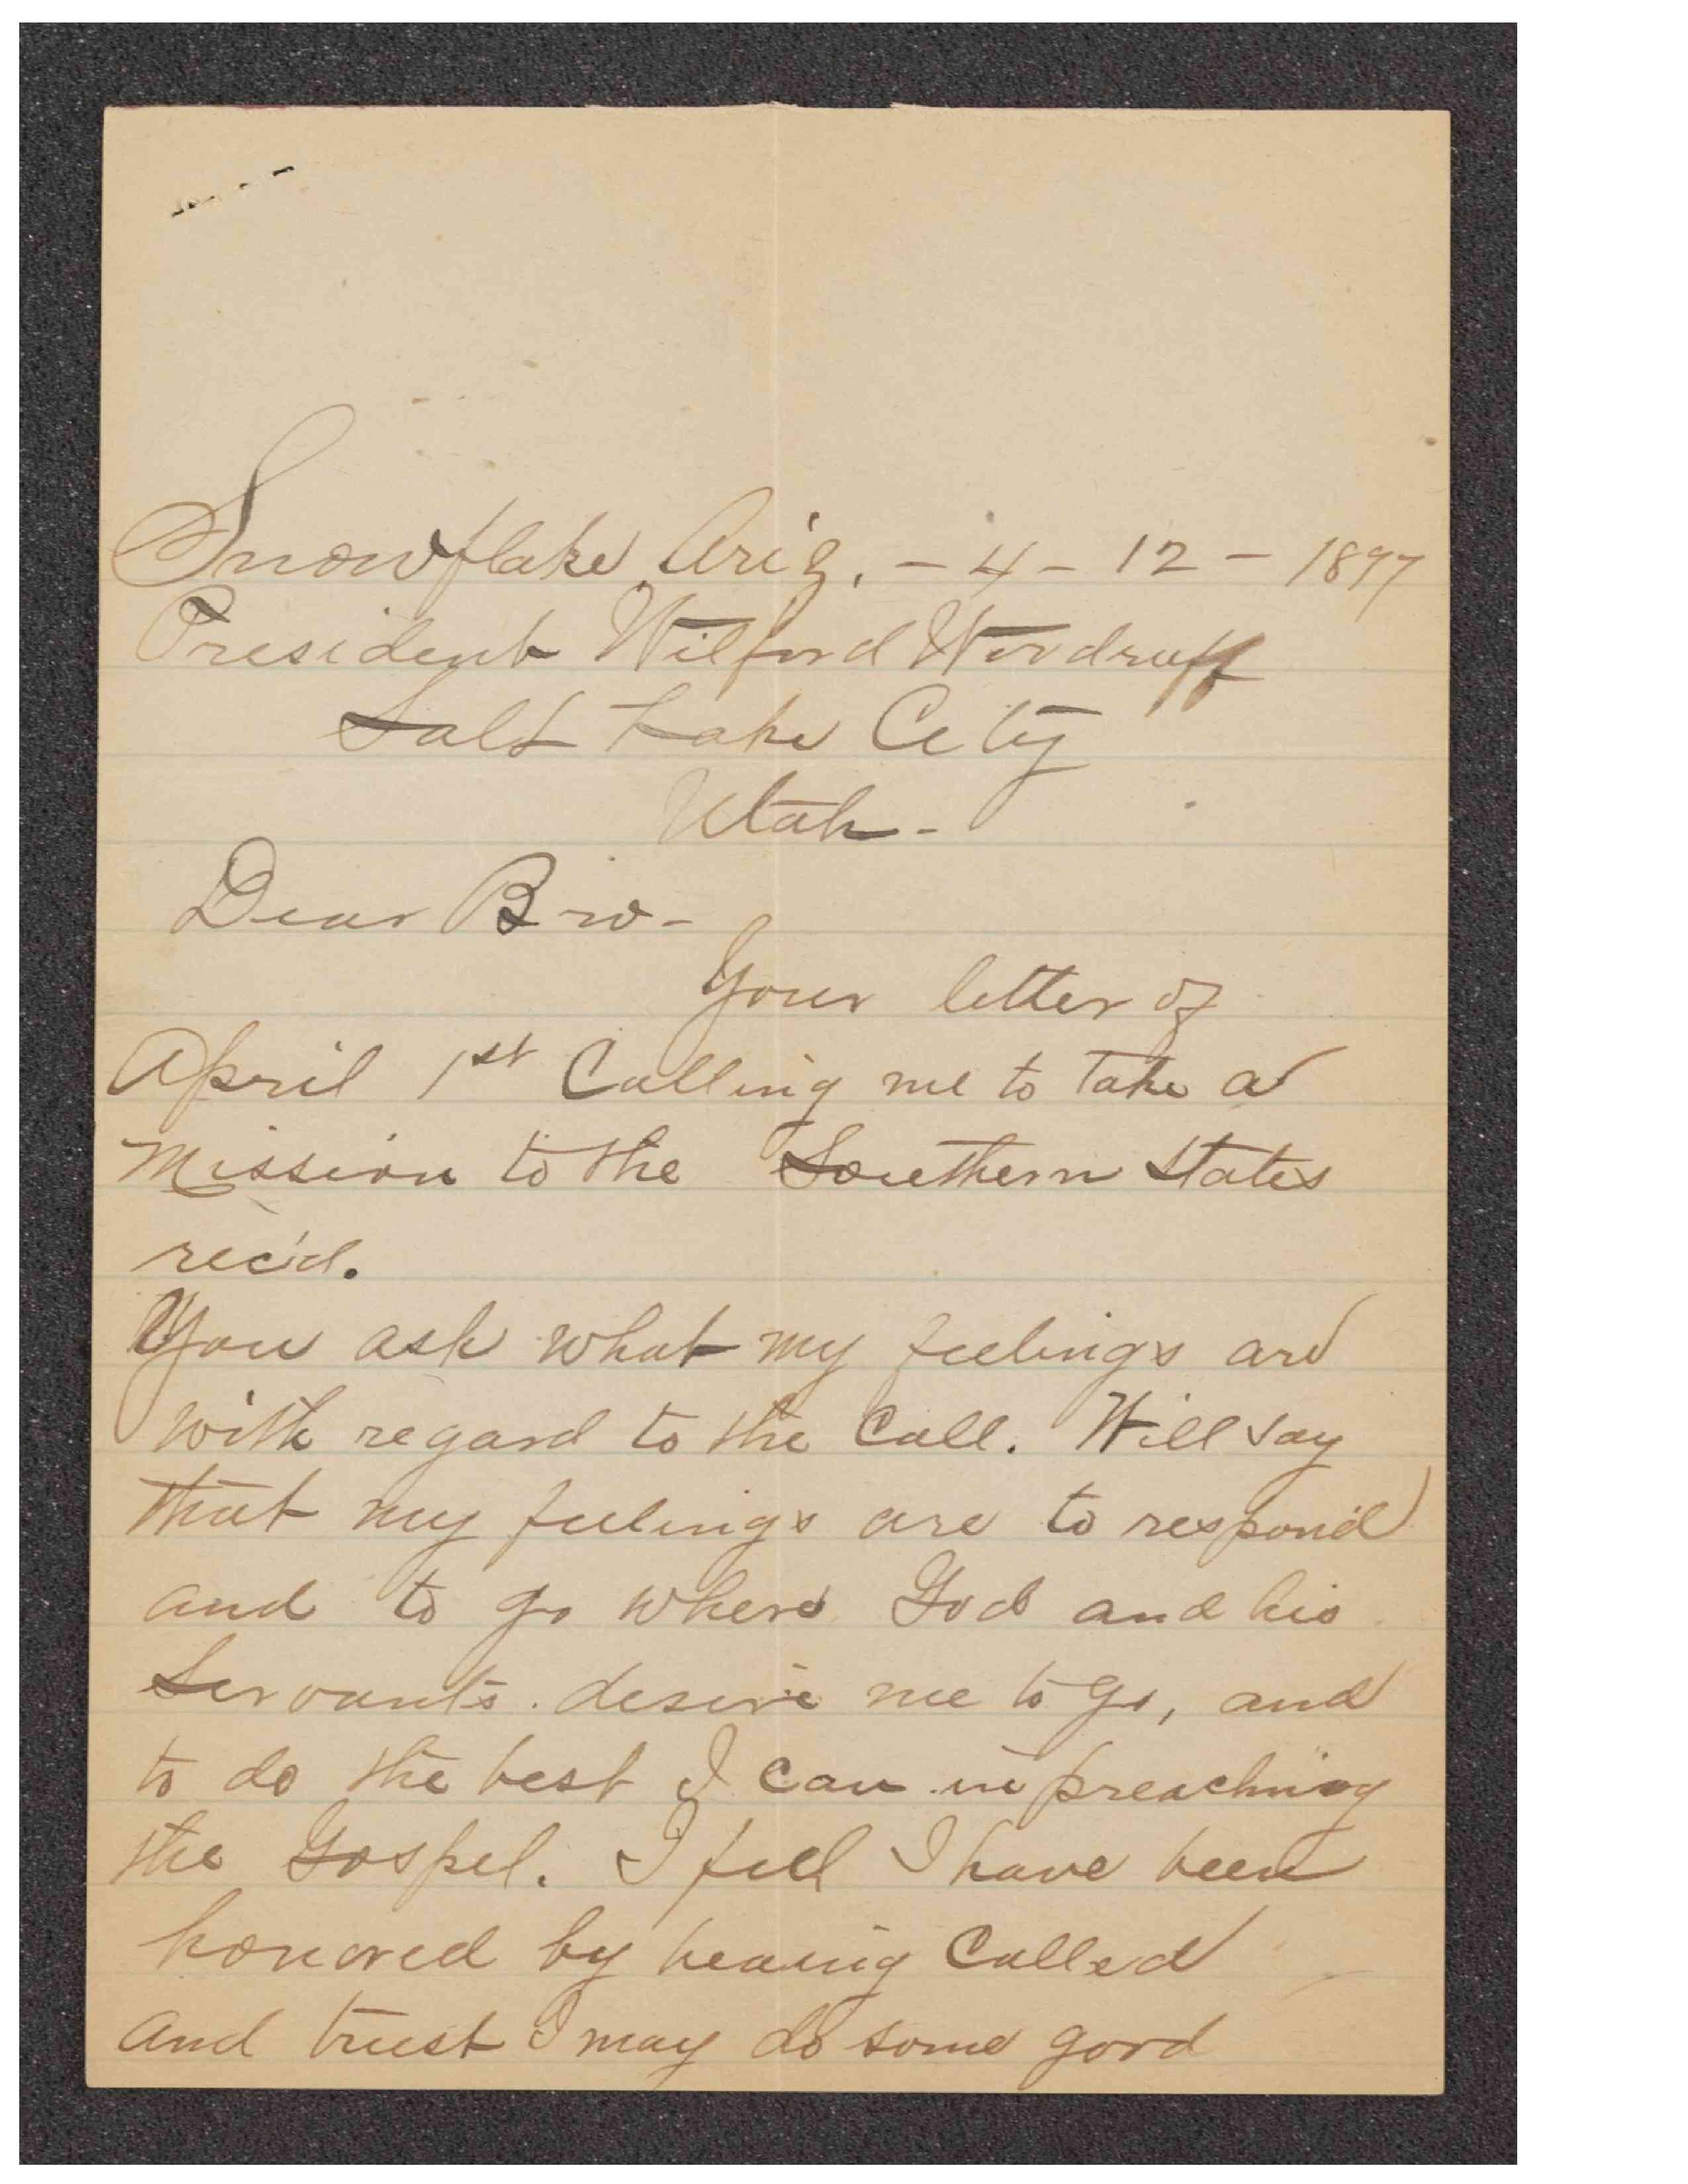 Snowflake, Ariz. - 4 - 12 - 1897
President Wilford Woodruff
Salt Lake City
Utah -
Dear Bro -
Your letter of
April 1st Calling me to take a
Mission to the Southern States
rec'd.
You ask what my feelings are
with regard to the Call. Will say
that my feelings are to respond
and to go where God and his
Servants desire me to go, and
to do the best I can in preaching
the Gospel. I feel I have been
honored by being Called
and trust I may do some good